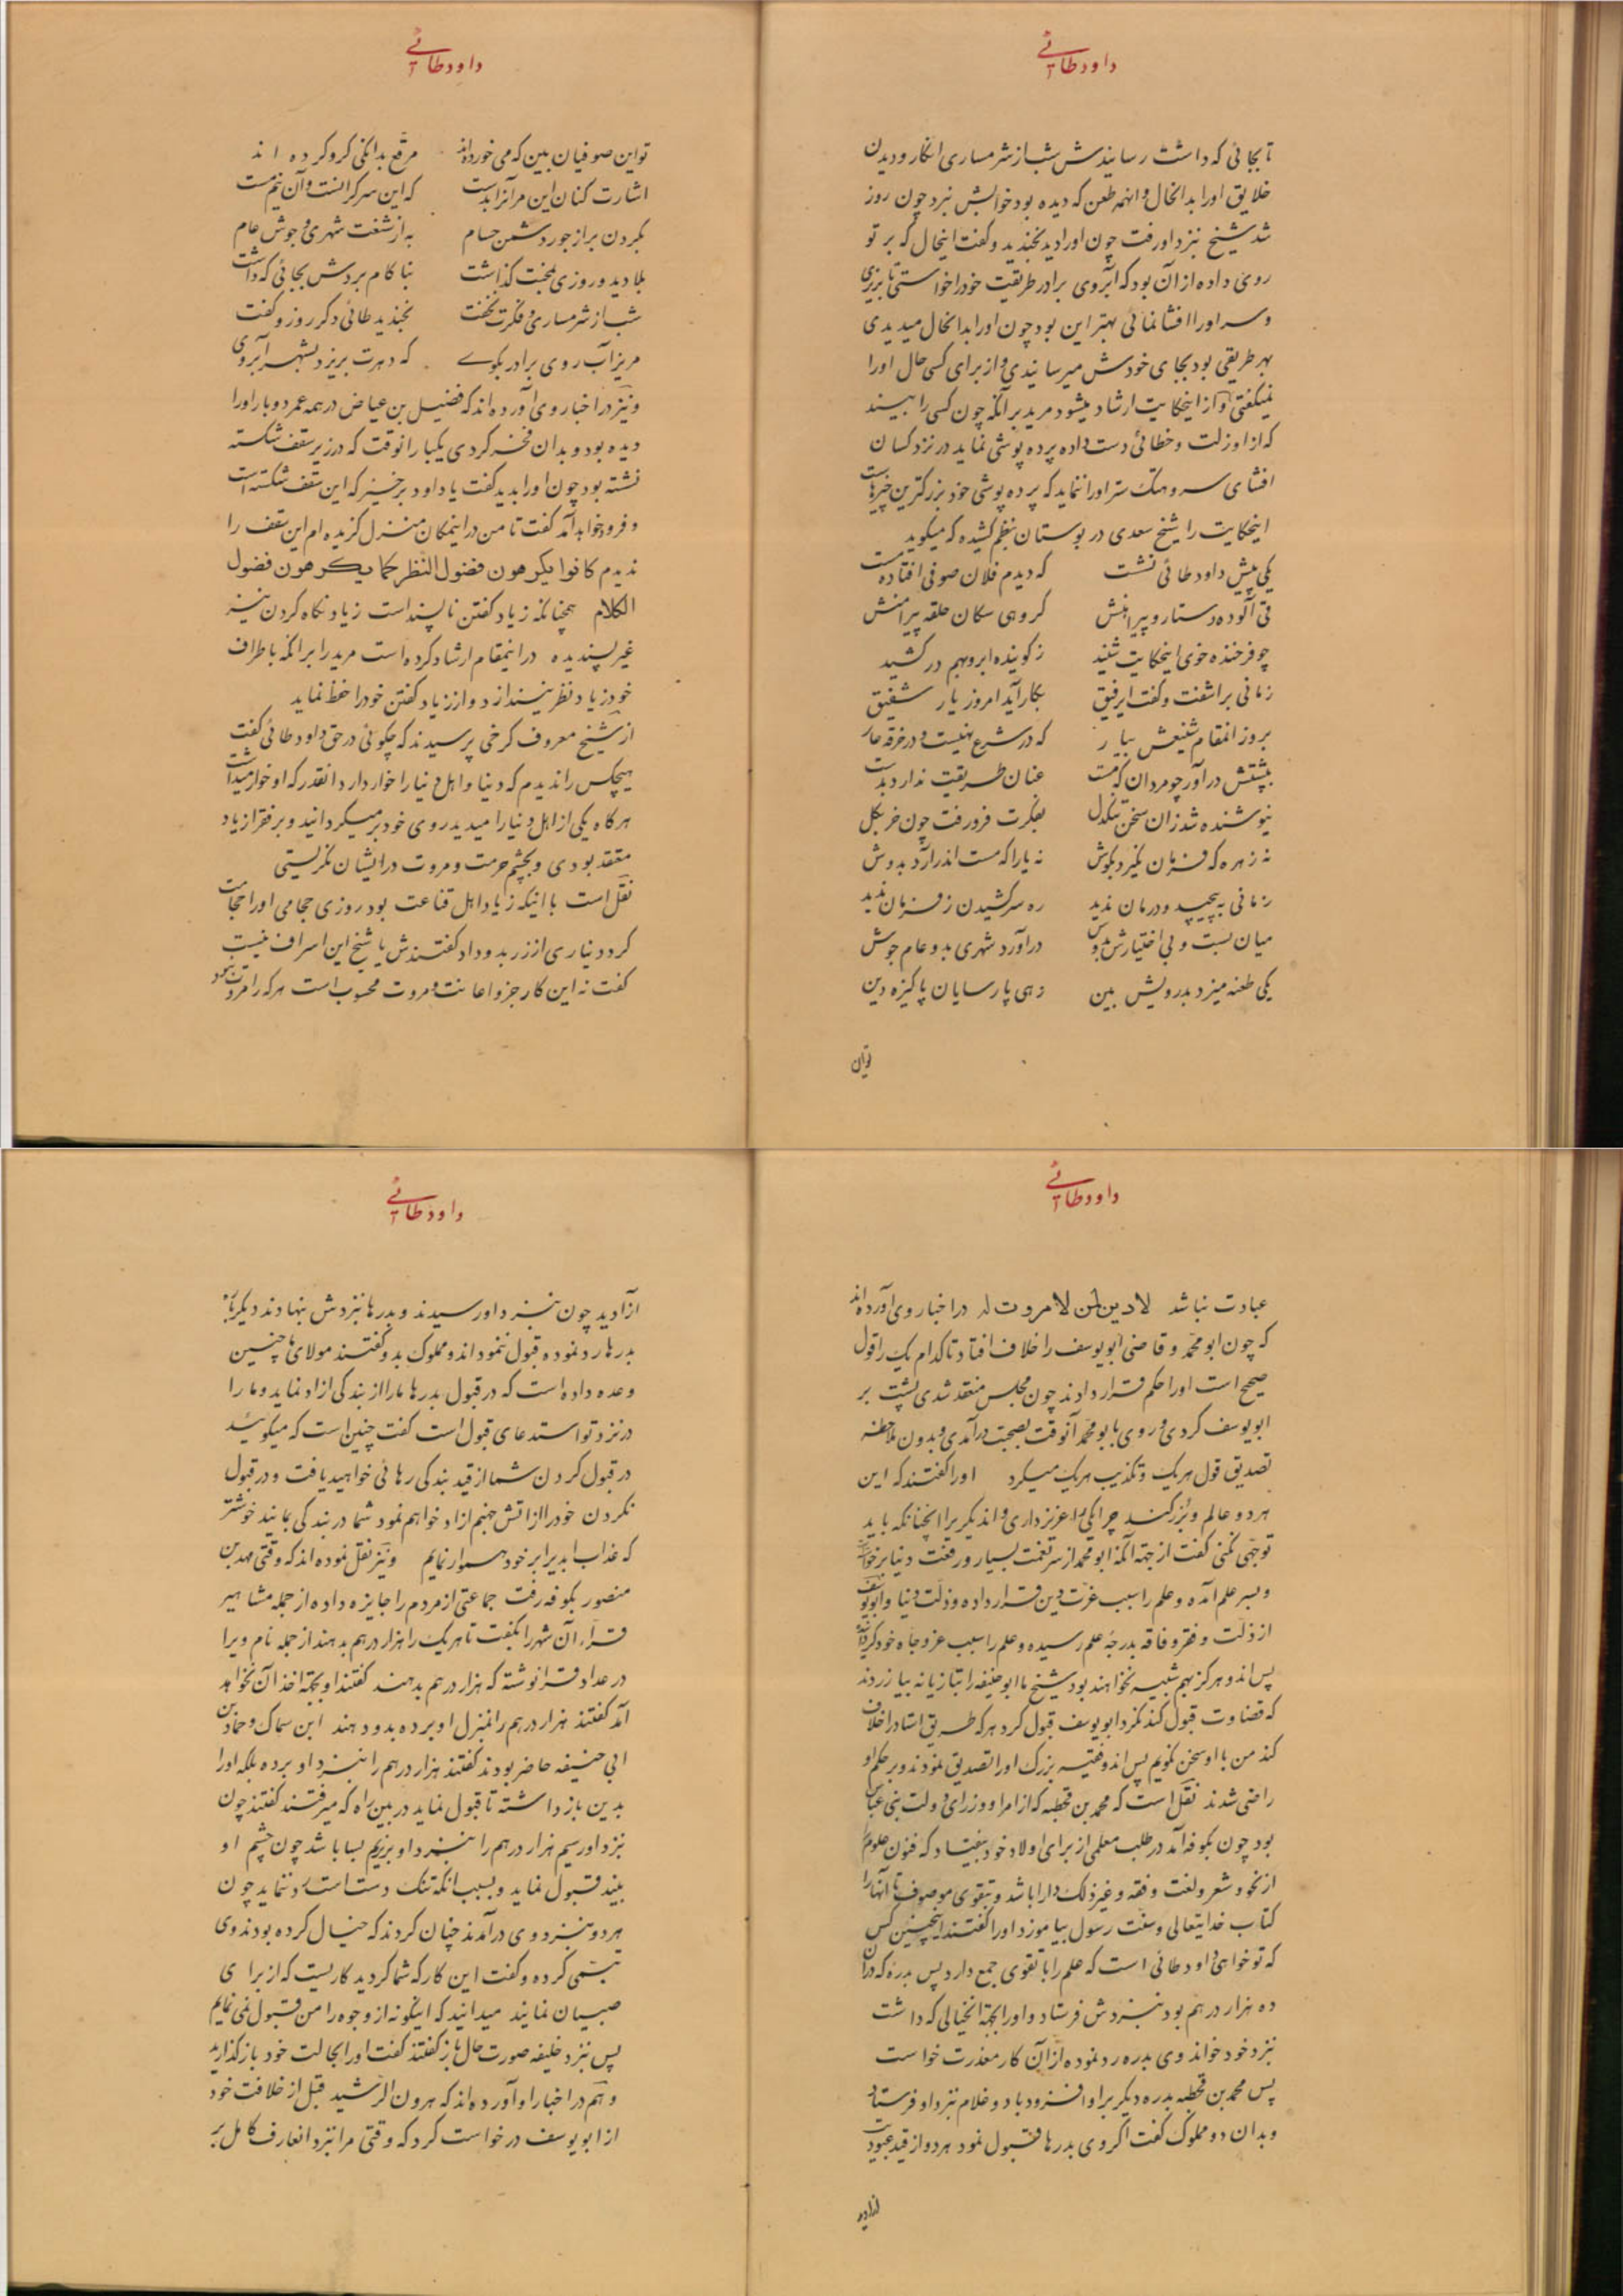 داود طائی
تا بجائی که داشت رسانیدش شب از شرمساری انکار و دیدن
خلایق او را بدانحال و انهمه طعن که دیده بود خوابش نبرد چون روز
شد شیخ نزد او رفت چون او را دید بخندید و گفت اینحال که بر تو
روی داده از آن بود که آبروی برادر طریقت خود را خواستی تا بریزی
و سر او را افشا نمائی بهتر این بود چون او را بدانحال میدیدی
بهر طریقی بود بجای خودش میرسانیدی و از برای کسی حال او را
نمیگفتی و از اینحکایت ارشاد میشود مرید بر آنکه چون کسی را ببیند
که از او زلت و خطائی دست داده پرده پوشی نماید در نزد کسان
افشای سر و هتک ستر او را ننماید که پرده پوشی خود بزرکترین چیزهاست
اینحکایت را شیخ سعدی در بوستان بنظم کشیده که میکوید
یکی پیش داود طائی نشست که دیدم فلان صوفی افتاده مست
قی آلوده دستار و پیراهنش کروهی سکان حلقه پیرامنش
چو فرخنده خوی اینحکایت شنید ز کوینده ابرو بهم در کشید
زمانی بر اشفت و گفت ای رفیق بکار آید امروز یار شفیق
برو ز انمقام شنیعش بیار که در شرع نهیست و در خرقه عار
بپشتش در آور چو مردان که مست عنان طریقت ندارد بدست
نیوشنده شد زان سخن تنکدل بفکرت فرو رفت چون خر بکل
نه زهره که فرمان نگیرد بکوش نه یارا که مست اندر آرد بدوش
زمانی به پیچید و درمان ندید ره سر کشیدن ز فرمان ندید
میان بست و بی اختیارش بدوش در آورد شهری بدو عام جوش
یکی طعنه میزد بدرویش بین زهی پارسایان پاکیزه دین
تو این
داود طائی
تو این صوفیان بین که می خورده‌اند مرقع بدانکی کرو کرده اند
اشارت کنان این مر آنرا بدست که این سر کرانست و آن نیم مست
بکردن بر از جور دشمن حسام به از شنعت شهری و جوش عام
بلا دید و روزی بمحنت گذاشت بنا کام بردش بجائی که داشت
شب از شرمساری و فکرت نخفت بخندید طائی دکر روز و گفت
مریز آب روی برادر بکوی که دهرت بریزد بشهر آبروی
و نیز در اخبار وی آورده‌اند که فضیل بن عیاض در همه عمر دو بار او را
دیده بود و بدان فخر کردی یکبار انوقت که در زیر سقف شکسته
نشسته بود چون او را بدید گفت یا داود برخیز که این سقف شکسته است
و فرود خواهد آمد گفت تا من در اینمکان منزل کزیده ام این سقف را
ندیدم کانوا یکرهون فضول النظر کما یکرهون فضول
الکلام همچنانکه زیاد گفتن ناپسند است زیاد نکاه کردن نیز
غیر پسندیده در اینمقام ارشاد کرده است مرید را بر انکه باطراف
خود زیاد نظر نیندازد و از زیاد گفتن خود را حفظ نماید
از شیخ معروف کرخی پرسیدند که چکوئی در حق داود طائی گفت
هیچکس را ندیدم که دنیا و اهل دنیا را خوار دارد انقدر که او خوار میداشت
هرکاه یکی از اهل دنیا را میدید روی خود بر میکردانید و بر فقرا زیاد
معتقد بودی و بچشم حرمت و مروت در ایشان نکریستی
نقل است با اینکه زیاد اهل قناعت بود روزی حجامی او را حجامت
کرد دیناری از زر بدو داد گفتندش یا شیخ این اسراف نیست
گفت نه این کار جزو اعانت و مروت محسوب است هر که را مروت نبود
داود طائی
عبادت نباشد لا دین لمن لا مروت له در اخبار وی آورده‌اند
که چون ابو محمد و قاضی ابو یوسف را خلاف افتاد تا کدام یک را قول
صحیح است او را حکم قرار دادند چون مجلس منعقد شدی پشت بر
ابو یوسف کردی و روی با بو محمد آنوقت بصحبت در آمدی و بدون ملاحظه
تصدیق قول هر یک و تکذیب هر یک میکرد او را گفتند که این
هر دو عالم و بزرکند چرا یکی را عزیز داری و اندیکر را انچنانکه باید
توجهی نکنی گفت از جهة آنکه ابو محمد از سر نعمت بسیار و رفعت دنیا برخواسته
و بسر علم آمده و علم را سبب عزت دین قرار داده و ذلت دنیا و ابو یوسف
از ذلت و فقر و فاقه بدرجه علم رسیده و علم را سبب عز و جاه خود کردانیده
پس اندو هرکز بهم شبیه نخواهند بود شیخ ما ابو حنیفه را بتازیانه بیازردند
که قضاوت قبول کند نکرد ابو یوسف قبول کرد هر که طریق استاد را خلاف
کند من با او سخن نکویم پس اندو فقیه بزرک او را تصدیق نمودند و بر حکم او
راضی شدند نقل است که محمد بن قحطبه که از امرا و وزرای دولت بنی عباس
بود چون بکوفه آمد در طلب معلمی از برای اولاد خود بیفتاد که فنون علوم
از نحو و شعر و لغت و فقه و غیر ذلک دارا باشد و بتقوی موصوف تا آنها را
کتاب خدایتعالی و سنت رسول بیاموزد او را گفتند اینچنین کس
که تو خواهی داود طائی است که علم را با تقوی جمع دارد پس بدره که در آن
ده هزار درهم بود بنزدش فرستاد و او را بجهة انخیالی که داشت
نزد خود خواند وی بدره رد نموده از آن کار معذرت خواست
پس محمد بن قحطبه بدره دیکر بر او افزود با دو غلام نزد او فرستاد
و بدان دو مملوک گفت اکر وی بدرها قبول نمود هر دو از قید عبودیت
ازادید
داود طائی
آزادید چون بنزد او رسیدند و بدرها نزدش بنهادند دیکر باره
بدرها رد نموده قبول ننمود اندو مملوک بدو گفتند مولای ما چنین
وعده داده است که در قبول بدرها ما را از بندکی ازاد نماید و ما را
در نزد تو استدعای قبول است گفت چنین است که میکوئید
در قبول کردن شما از قید بندکی رهائی خواهید یافت و در قبول
نکردن خود را از اتش جهنم ازاد خواهم نمود شما در بندکی بمانید خوشتر
که عذاب ابدیرا بر خود هموار نمایم و نیز نقل نموده اند که وقتی مهدی بن
منصور بکوفه رفت جماعتی از مردم را جایزه داده از جمله مشاهیر
قراء آن شهر را بگفت تا هر یک را هزار درهم بدهند از جمله نام ویرا
در عداد قرا نوشته که هزار درهم بدهند گفتند او بجهة اخذ آن نخواهد
آمد گفتند هزار درهم را بمنزل او برده بدو دهند ابن سماک و حماد بن
ابی حنیفه حاضر بودند گفتند هزار درهم را بنزد او برده بلکه او را
بدین باز داشته تا قبول نماید در بین راه که میرفتند گفتند چون
نزد او رسیم هزار درهم را بنزد او بریزیم بسا باشد چون چشم او
بیند قبول نماید و بسبب انکه تنک دست است رد ننماید چون
هر دو بنزد وی در آمدند چنان کردند که خیال کرده بودند وی
تبسمی کرده و گفت این کار که شما کردید کاریست که از برای
صبیان نمایند میدانید که اینکونه از وجوه را من قبول نمی نمایم
پس نزد خلیفه صورت حال باز گفتند گفت او را بحالت خود بازگذارید
و هم در اخبار او آورده‌اند که هرون الرشید قبل از خلافت خود
از ابو یوسف درخواست کرد که وقتی مرا نزد انعارف کامل بر